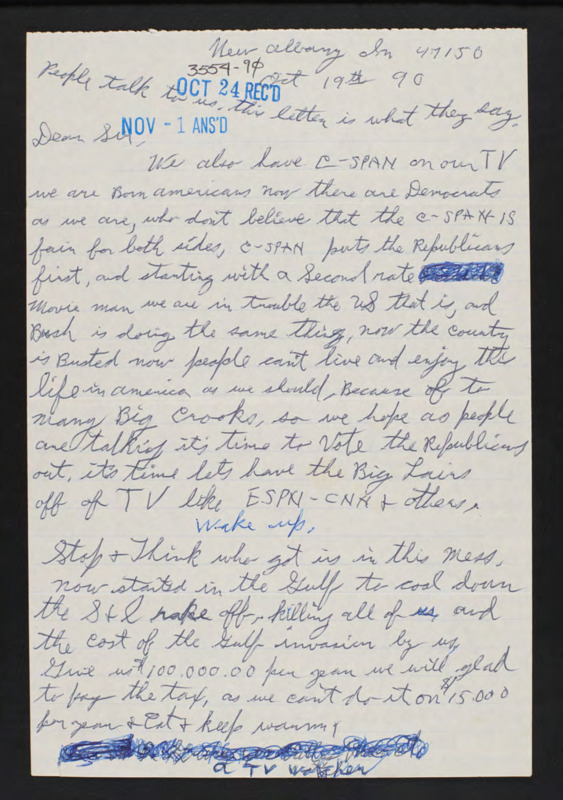 New Albany In 47150
3554-90
Oct 19th 90
People talk to us, this letter is what they say.
OCT 24 REC'D
NOV - 1 ANS'D
Dear Sir,
We also have C-SPAN on our TV
we are Born americans now there are Democrats
as we are, who dont believe that the C-SPAN IS
fair for both sides, C-SPAN puts the Republicans
first, and starting with a Second rate
Movie man we are in trouble the US that is, and
Bush is doing the same thing, now the country
is Busted now people cant live and enjoy the
life in america as we should, Because of to
many Big Crooks, so we hope as people
are talking it's time to Vote the Republicans
out, its time lets have the Big Lairs
off of TV like ESPN-CNN & others.
Wake up,
Stop & Think who got us in this mess,
now started in the Gulf to cool down
the S&L rake off, killing all of us and
the cost of the Gulf invasion by us,
Give us $100,000.00 per year we will glad
to pay the tax, as we cant do it on $15.000
per year & Eat & keep warm,
a TV watcher